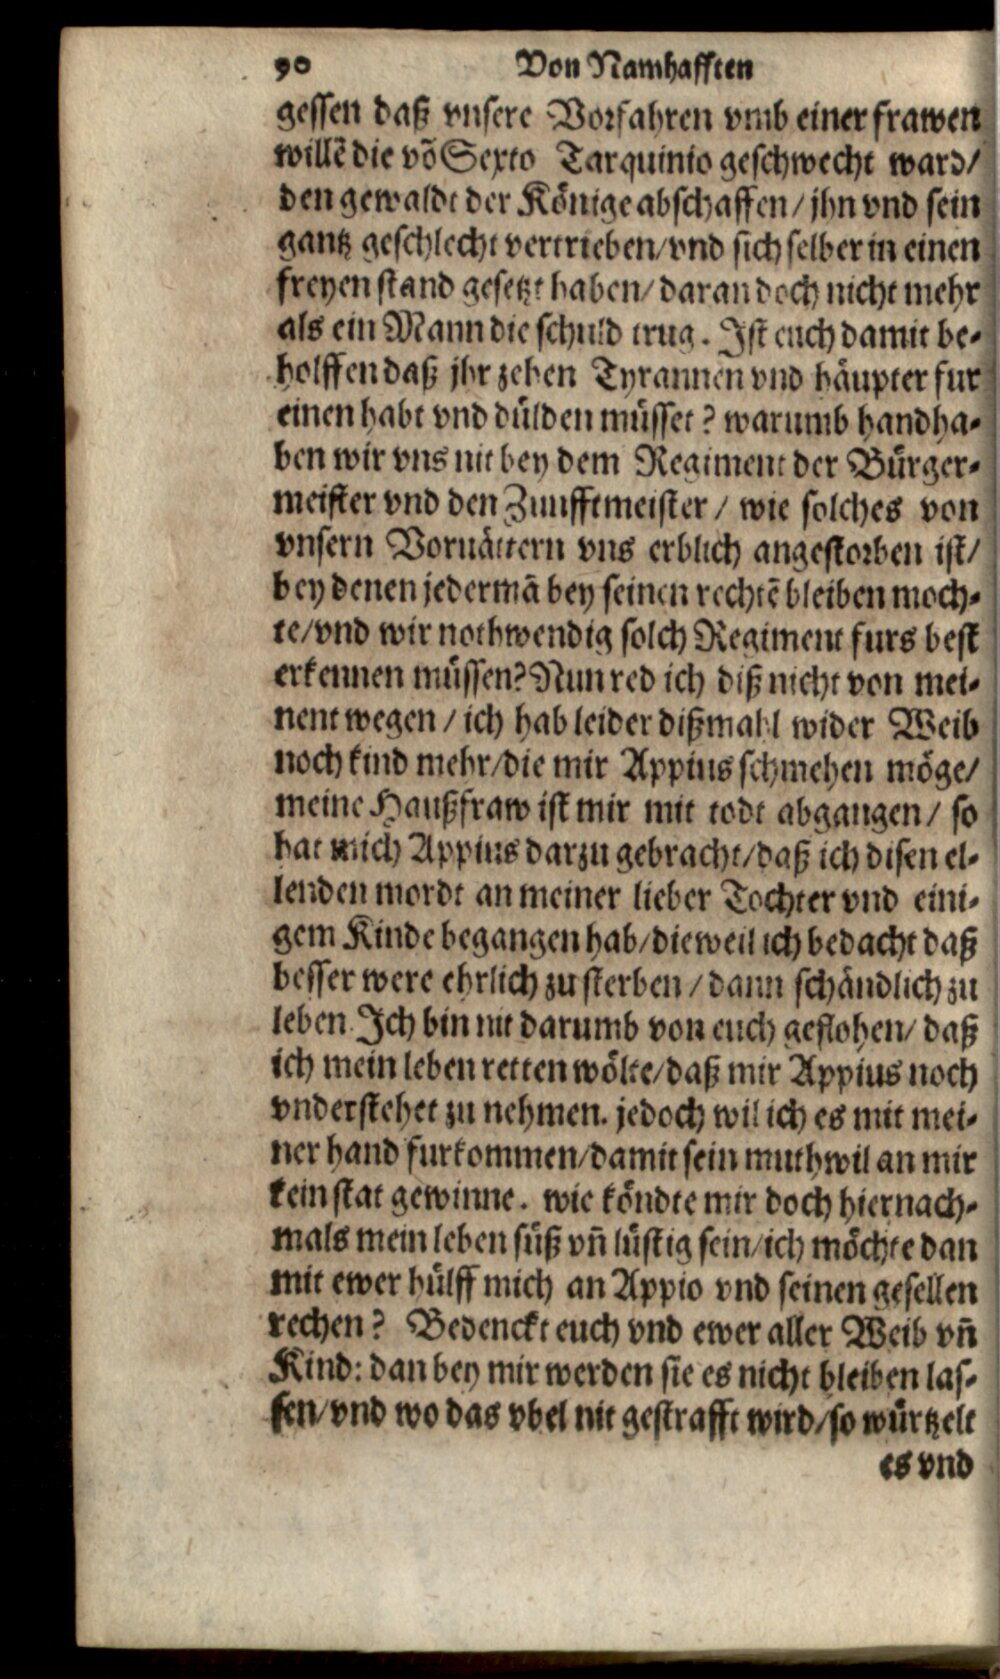 90 Von Namhafften
gessen daß vnsere Vorfahren vmb einer frawen
willẽ die võ Sexto Tarquinio geschwecht ward/
den gewaldt der Könige abschaffen/ jhn vnd sein
gantz geschlecht vertrieben/ vnd sich selber in einen
freyen stand gesetzt haben/ daran doch nicht mehr
als ein Mann die schuld trug. Ist euch damit be-
holffen daß jhr zehen Tyrannen vnd häupter fur
einen habt vnd dülden müsset? warumb handha-
ben wir vns nit bey dem Regiment der Bürger-
meister vnd den Zunfftmeister/ wie solches von
vnsern Voruättern vns erblich angestorben ist/
bey denen jedermã bey seinen rechtẽ bleiben moch-
te/ vnd wir nothwendig solch Regiment furs best
erkennen müssen? Nun red ich diß nicht von mei-
nent wegen/ ich hab leider dißmahl wider Weib
noch kind mehr/ die mir Appius schmehen möge/
meine Haußfraw ist mir mit todt abgangen/ so
hat mich Appius darzu gebracht/ daß ich disen el-
lenden mordt an meiner lieber Tochter vnd eini-
gem Kinde begangen hab/ dieweil ich bedacht daß
besser were ehrlich zu sterben/ dann schändlich zu
leben. Ich bin nit darumb von euch geflohen/ daß
ich mein leben retten wölte/ daß mir Appius noch
vnderstehet zu nehmen. jedoch wil ich es mit mei-
ner hand furkommen/ damit sein muthwil an mir
kein stat gewinne. wie köndte mir doch hiernach-
mals mein leben süß vñ lüstig sein/ ich möchte dan
mit ewer hülff mich an Appio vnd seinen gesellen
rechen? Bedenckt euch vnd ewer aller Weib vñ
Kind: dan bey mir werden sie es nicht bleiben las-
sen/ vnd wo das vbel nit gestrafft wird/ so würtzelt
es vnd